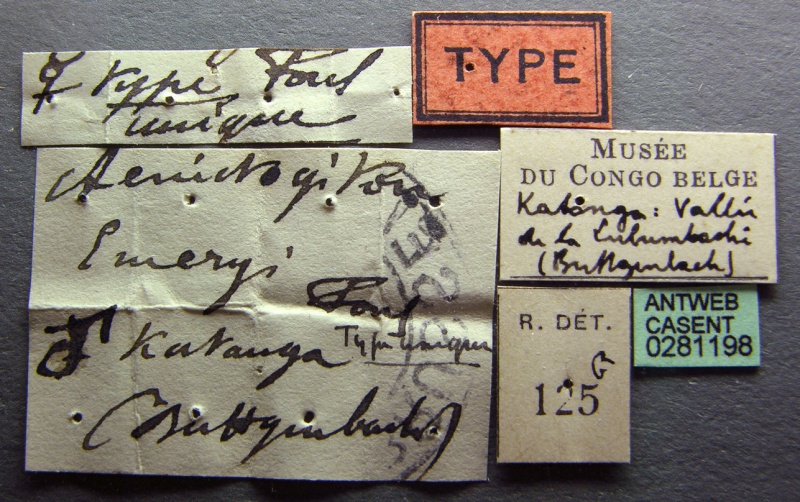 ☿ type Forel
unique
TYPE
Aenictogiton
Emeryi
Forel
♂ Katanga Type unique
(Buttgenbach)
MUSÉE
DU CONGO BELGE
Katanga: Vallée
de la Lubumbashi
(Buttgenbach)
R. DÉT.
G
125
ANTWEB
CASENT
0281198